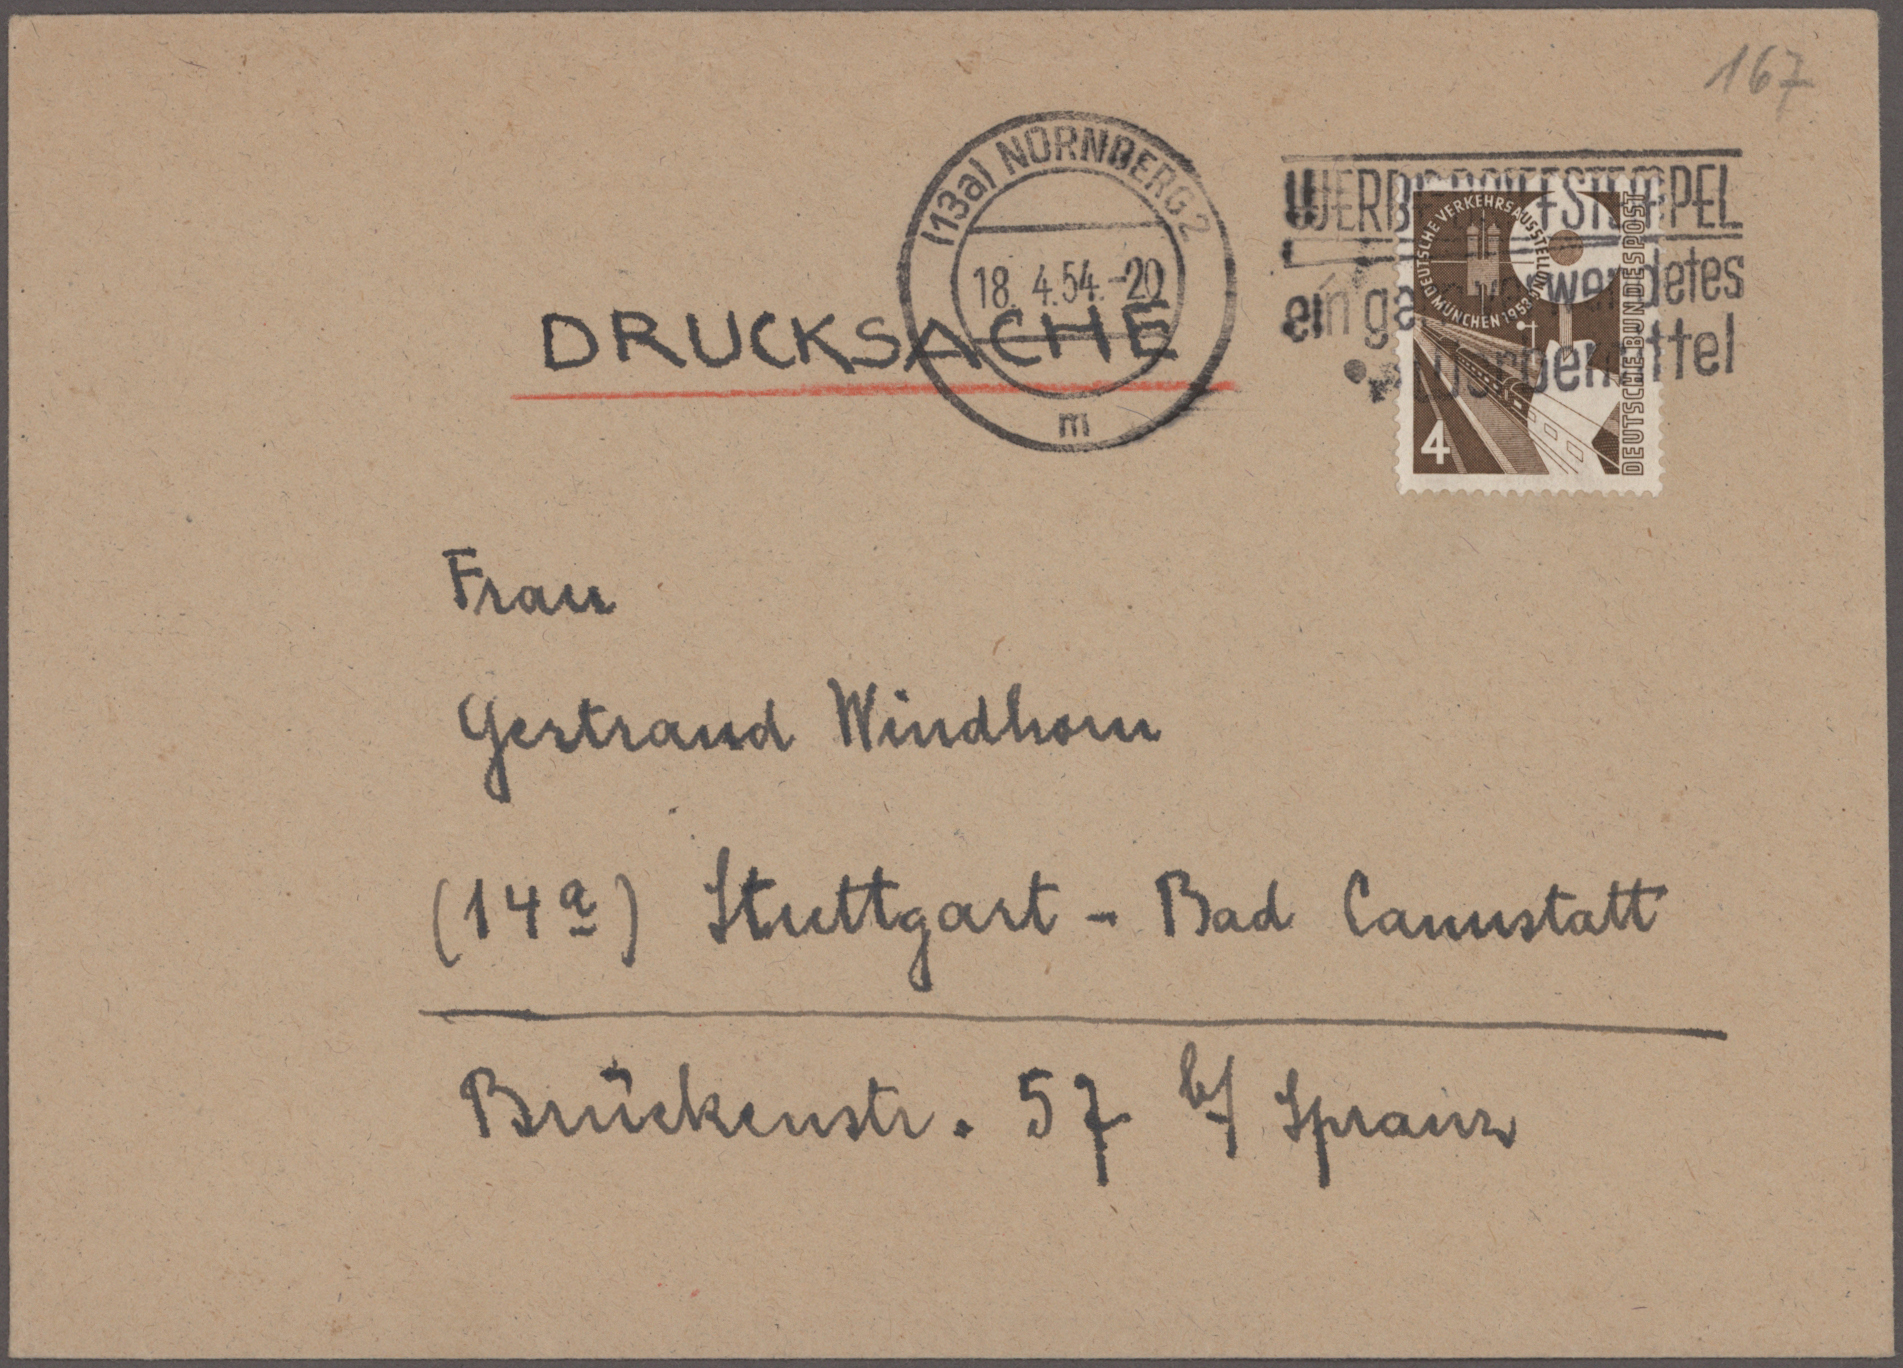 167
(13a) NÜRNBERG 2
18. 4. 54. -20
m
WERBE STEMPEL
ein wendetes
DEUTSCHE VERKEHRSAUSSTELLUNG MÜNCHEN 1953
DEUTSCHE BUNDESPOST
4
DRUCKSACHE
Frau
Gertraud Windhorn
(14a) Stuttgart - Bad Cannstatt
Brückenstr. 57 b/ Spranz